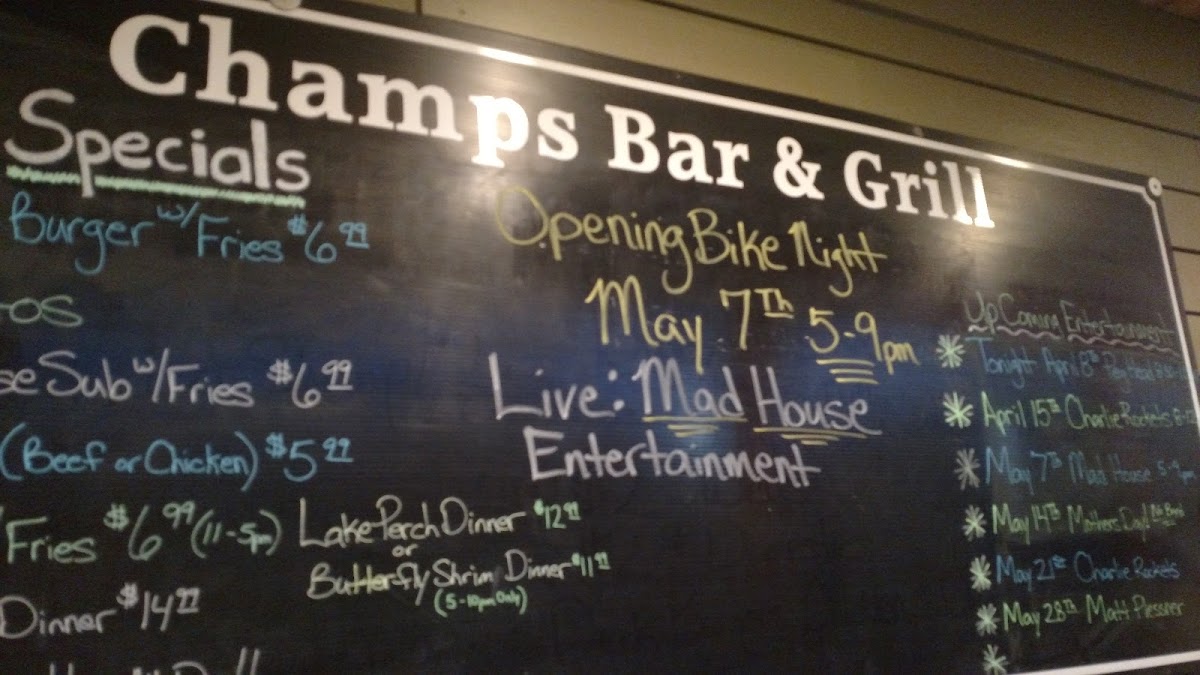 Champs Bar & Grill
Specials
Burger w/Fries $6.99
os
se Sub w/Fries $6.99
(Beef or Chicken) $5.99
Fries $6.99 (11-5pm)
Dinner $14.99
Lake Perch Dinner $12.99
or
Butterfly Shrim Dinner $11.99
(5-10pm Only)
Opening Bike Night
May 7th 5-9pm
Live: Mad House
Entertainment
UpComing Entertainment
Tonight April 8th
April 15th Charlie Rockets
May 7th Mad House 5-9pm
May 14th Mothers Day! No Band
May 21st Charlie Rockets
May 28th Matt Plessner